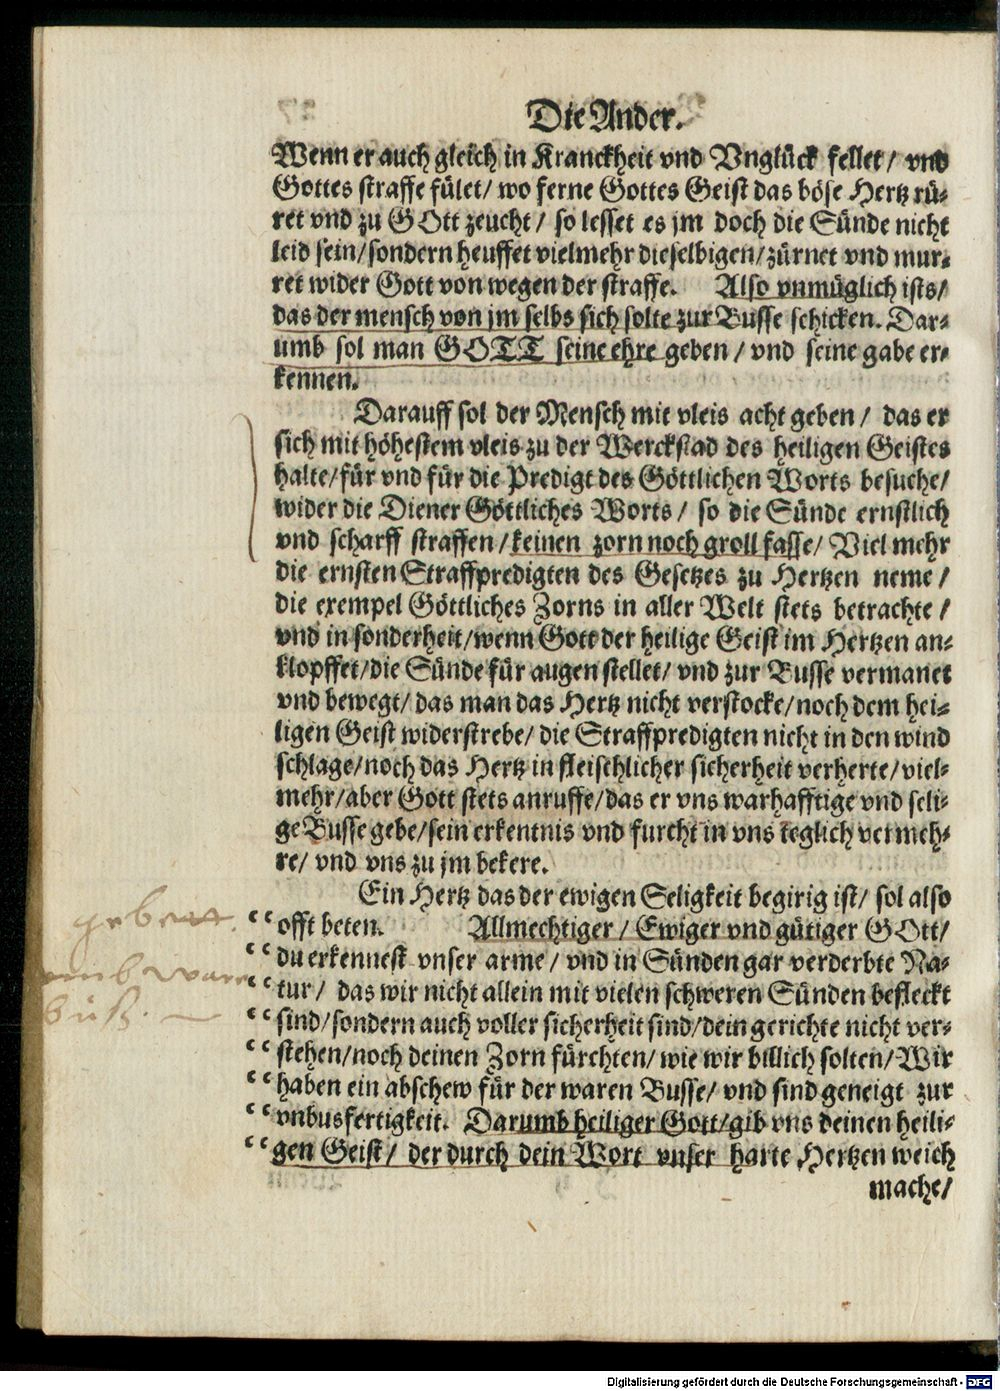 Die Ander.
Wenn er auch gleich in Kranckheit vnd Vnglück fellet / vnd
Gottes straffe fület/ wo ferne Gottes Geist das böse Hertz rü-
ret vnd zu GOtt zeucht / so lesset es jm doch die Sünde nicht
leid sein/sondern heuffet vielmehr dieselbigen/zürnet vnd mur-
ret wider Gott von wegen der straffe. Also vnmüglich ists/
das der mensch von jm selbs sich solte zur Busse schicken. Dar-
umb sol man GOTT seine ehre geben / vnd seine gabe er-
kennen.
Darauff sol der Mensch mit vleis acht geben / das er
sich mit höhestem vleis zu der Werckstad des heiligen Geistes
halte/für vnd für die Predigt des Göttlichen Worts besuche/
wider die Diener Göttliches Worts / so die Sünde ernstlich
vnd scharff straffen/keinen zorn noch groll fasse/ Viel mehr
die ernsten Straffpredigten des Gesetzes zu Hertzen neme /
die exempel Göttliches Zorns in aller Welt stets betrachte /
vnd in sonderheit/wenn Gott der heilige Geist im Hertzen an-
klopffet/die Sünde für augen stellet/ vnd zur Busse vermanet
vnd bewegt/ das man das Hertz nicht verstocke/noch dem hei-
ligen Geist widerstrebe/ die Straffpredigten nicht in den wind
schlage/noch das Hertz in fleischlicher sicherheit verherte/viel-
mehr/aber Gott stets anruffe/das er vns warhafftige vnd seli-
ge Busse gebe/sein erkentnis vnd furcht in vns teglich vermeh-
re/ vnd vns zu jm bekere.
Ein Hertz das der ewigen Seligkeit begirig ist/ sol also
gebett. “offt beten. Allmechtiger / Ewiger vnd gütiger GOtt/
“du erkennest vnser arme / vnd in Sünden gar verderbte Na-
umb ware “tur / das wir nicht allein mit vielen schweren Sünden befleckt
buß. “sind/sondern auch voller sicherheit sind/dein gerichte nicht ver-
“stehen/noch deinen Zorn fürchten/ wie wir billich solten/Wir
“haben ein abschew für der waren Busse/ vnd sind geneigt zur
“vnbusfertigkeit. Darumb heiliger Gott/gib vns deinen heili-
“gen Geist/ der durch dein Wort vnser harte Hertzen weich
mache/
Digitalisierung gefördert durch die Deutsche Forschungsgemeinschaft - DFG